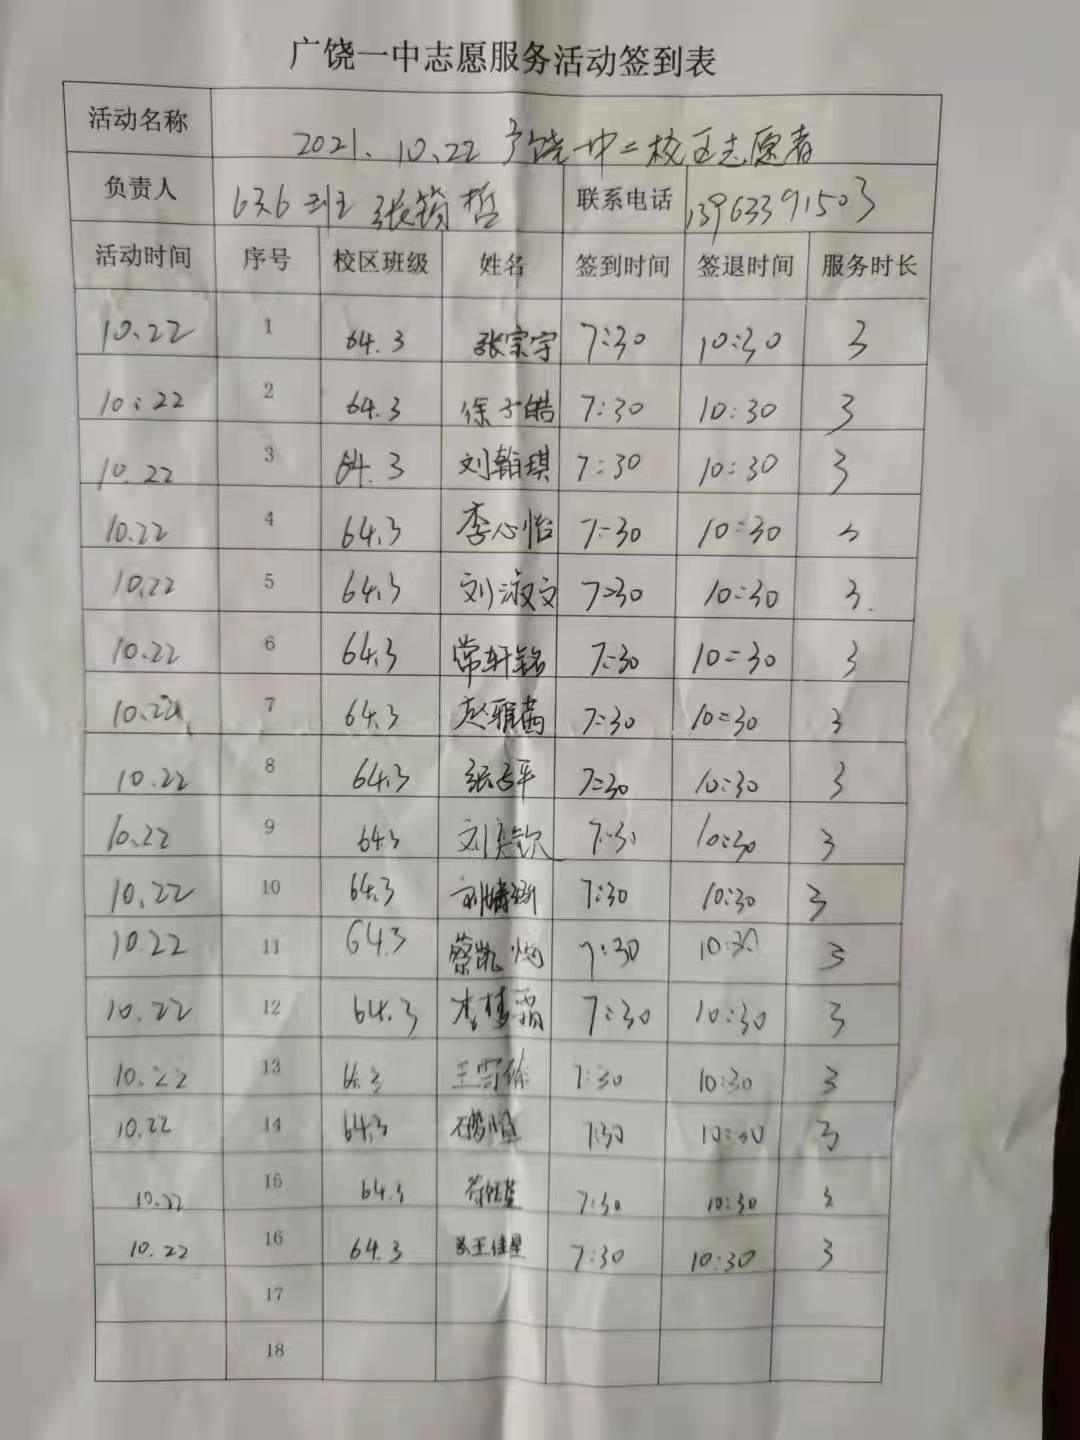 广饶一中志愿服务活动签到表
活动名称 2021.10.22 广饶一中二校区志愿者
负责人 636班 张筠哲 联系电话 13963391503
活动时间 序号 校区班级 姓名 签到时间 签退时间 服务时长
10.22 1 64.3 张宗宇 7:30 10:30 3
10:22 2 64.3 徐子皓 7:30 10:30 3
10.22 3 64.3 刘翰琪 7:30 10:30 3
10.22 4 64.3 李心怡 7:30 10:30 3
10.22 5 64.3 刘淑文 7:30 10:30 3.
10.22 6 64.3 常轩铭 7:30 10:30 3
10.22 7 64.3 赵雅茜 7:30 10:30 3
10.22 8 64.3 张 平 7:30 10:30 3
10.22 9 64.3 刘奕钦 7:30 10:30 3
10.22 10 64.3 刘 7:30 10:30 3
10.22 11 64.3 蔡凯 7:30 10:30 3
10.22 12 64.3 李梦霜 7:30 10:30 3
10.22 13 64.3 王雪 7:30 10:30 3
10.22 14 64.3 石 7:30 10:30 3
10.22 15 64.3 7:30 10:30 3
10.22 16 64.3 王佳星 7:30 10:30 3
17
18